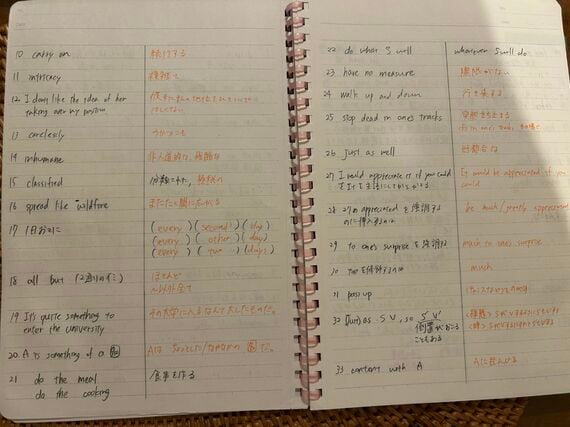 10 carry on 続行する
11 intricacy 複雑さ
12 I don't like the idea of her
taking over my position
13 carelessly うかつにも
14 inhumane 非人道的な, 残酷な
15 classified 分類された, 極秘の
16 spread like wildfire またたく間に広がる
17 1日おきに (every) (second) (day)
(every) (other) (day)
(every) (two) (days)
18 all but (2通りの イミ) ほとんど
〜以外全て
19 It's quite something to
enter the university
その大学に入るなんて大したものだ。
20 A is something of a 名 Aは
21 do the meal 食事を作る
do the cooking
22 do what S will whatever S will do
23 have no measure 際限がない
24 walk up and down 行き来する
25 stop dead in one's tracks 突然立ち止まる
26 just as well 好都合な
27 I would appreciate it if you could It would be appreciated if you
could
28 27の appreciated を強調する
のに挿入するのは
be much / greatly appreciated
29 to one's surprise を強調 much to one's surprise
30 too を修飾するのは much
31 pass up
32 (Just) as S V, so S' V'
倒置がおこる
こともある
33 content with A Aに甘んじる